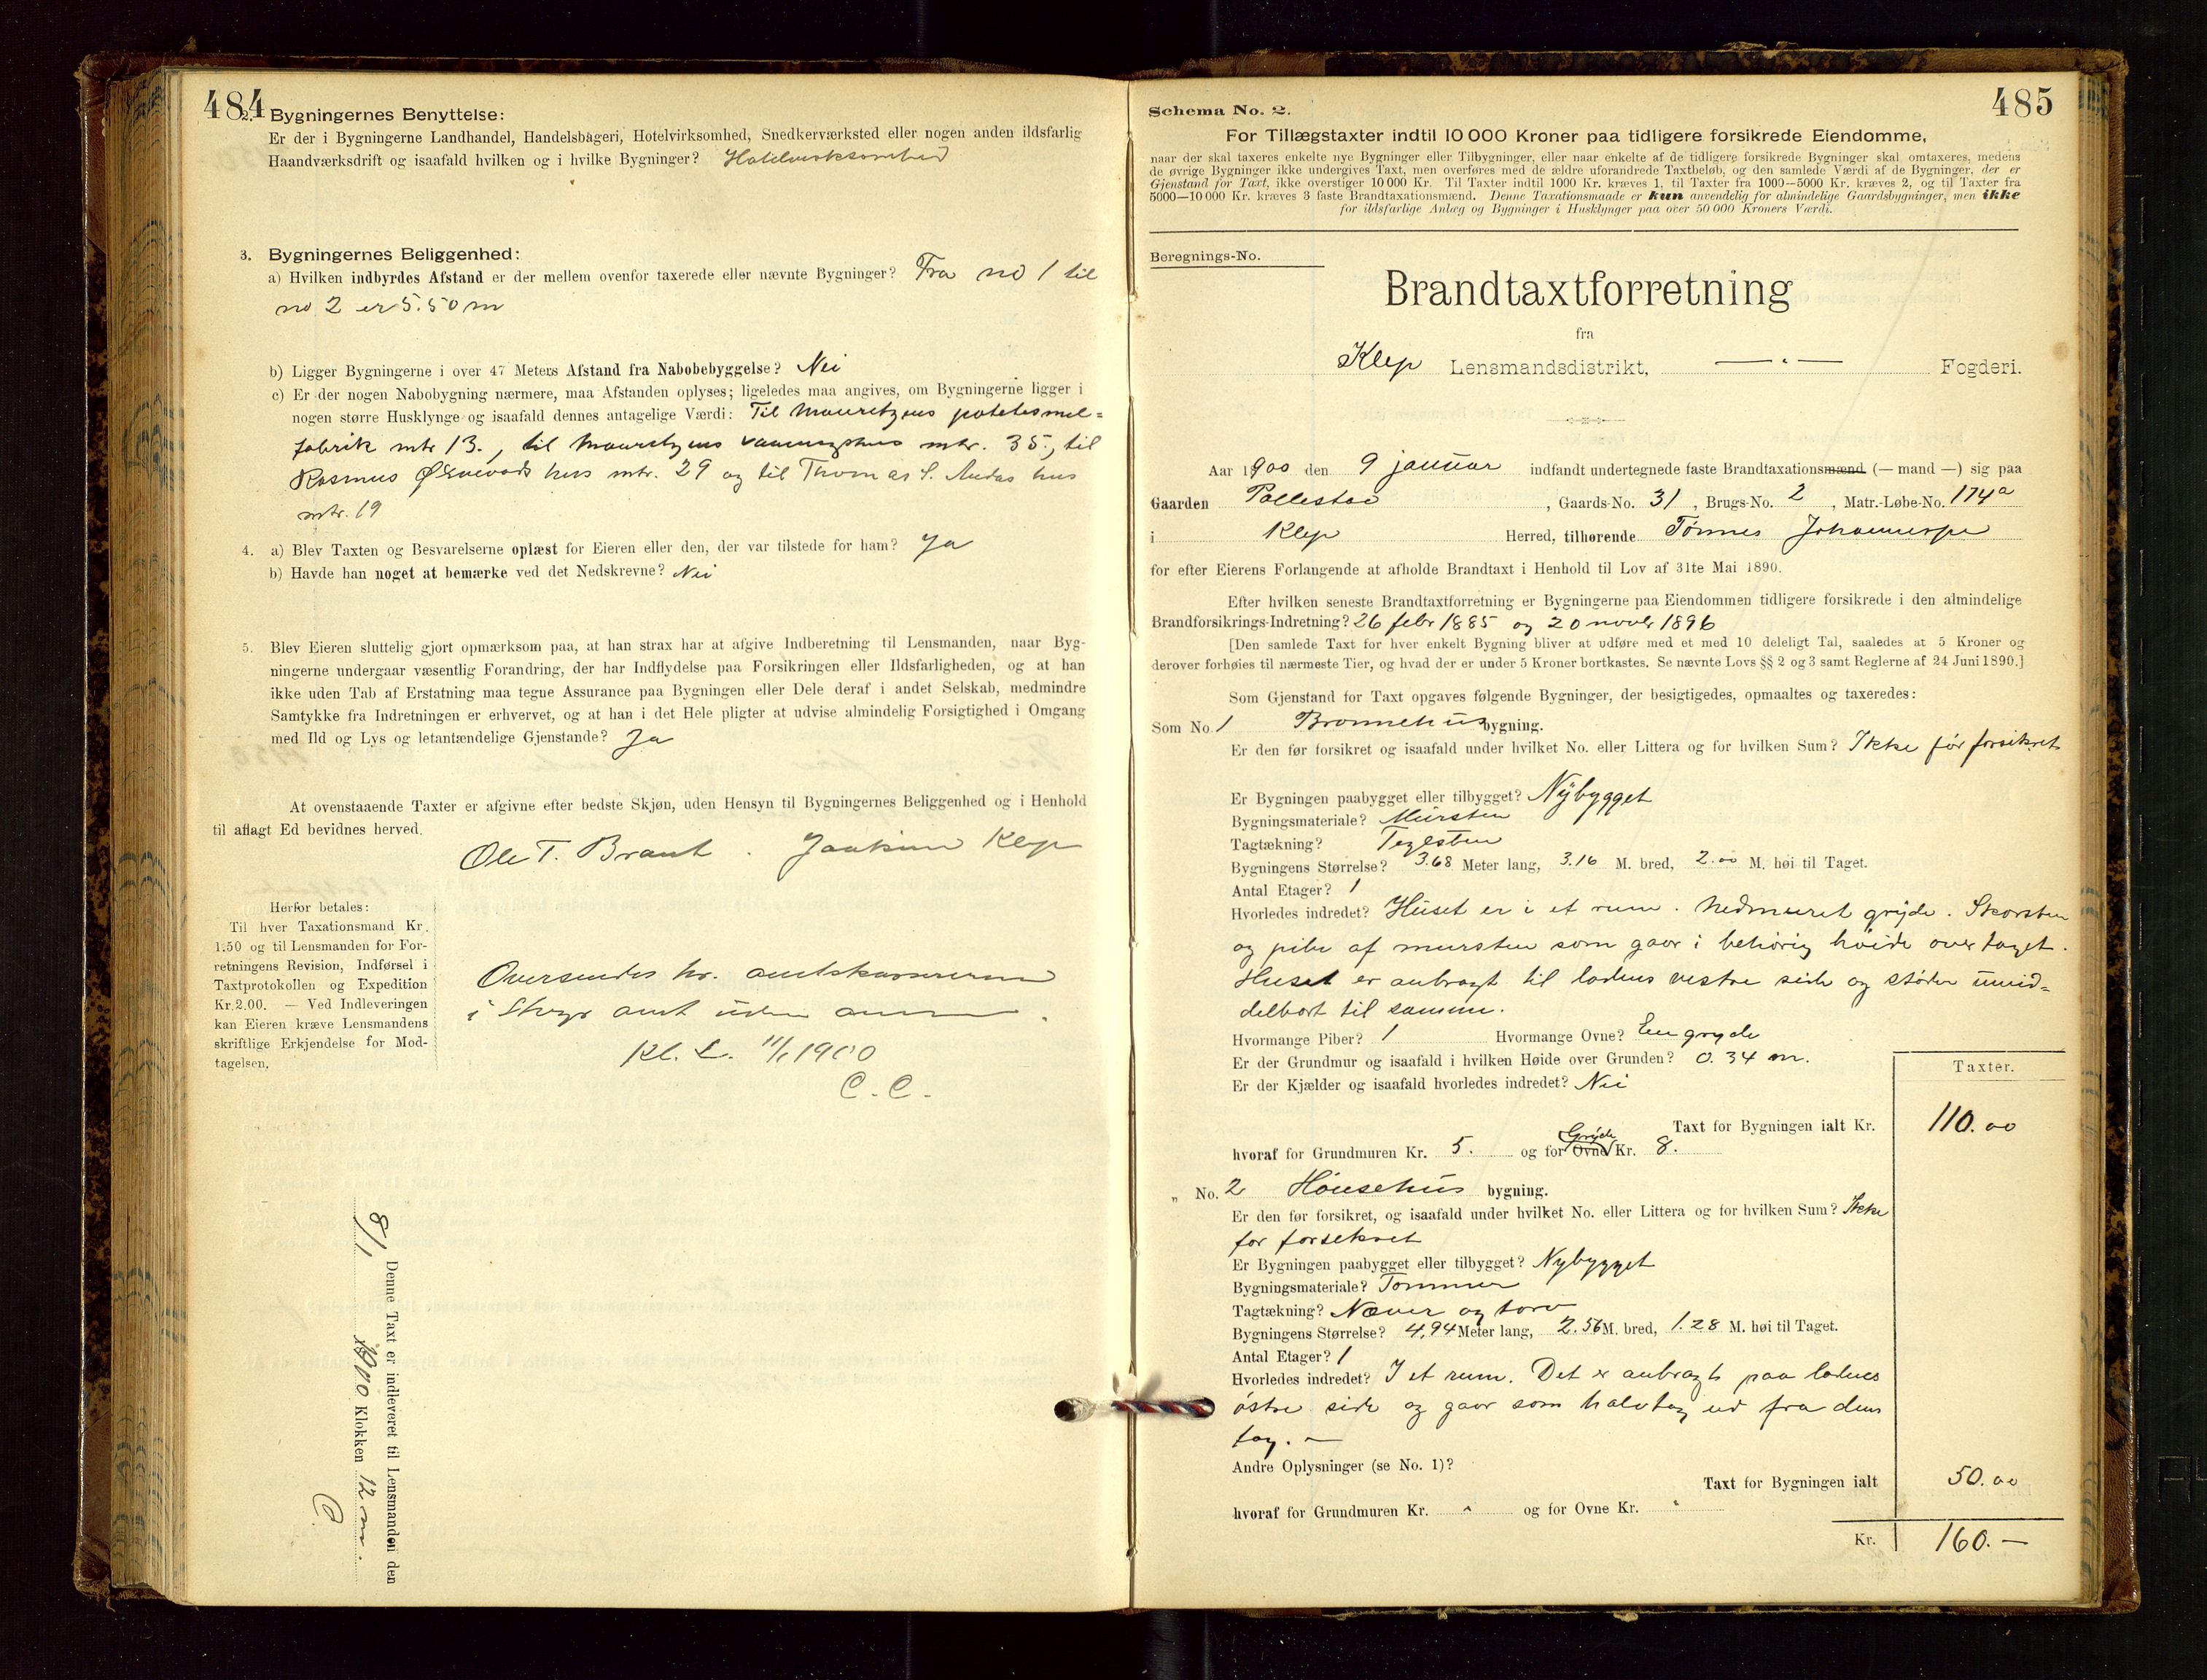 484
2. Bygningernes Benyttelse:
Er der i Bygningerne Landhandel, Handelsbageri, Hotelvirksomhed, Snedkerværksted eller nogen anden ildsfarlig
Haandværksdrift og isaafald hvilken og i hvilke Bygninger? Hotelvirksomhed
3. Bygningernes Beliggenhed:
a) Hvilken indbyrdes Afstand er der mellem ovenfor taxerede eller nævnte Bygninger? Fra no 1 til
no 2 er 5.50 m
b) Ligger Bygningerne i over 47 Meters Afstand fra Nabobebyggelse? Nei
c) Er der nogen Nabobygning nærmere, maa Afstanden oplyses; ligeledes maa angives, om Bygningerne ligger i
nogen større Husklynge og isaafald dennes antagelige Værdi: Til Mauritzens potetesmel=
fabrik mtr 13., til Mauritzens vaaningshus mtr. 35, til
Rasmus hus mtr. 29 og til Thomas S. Andas hus
mtr. 19
4. a) Blev Taxten og Besvarelserne oplæst for Eieren eller den, der var tilstede for ham? Ja
b) Havde han noget at bemærke ved det Nedskrevne? Nei
5. Blev Eieren sluttelig gjort opmærksom paa, at han strax har at afgive Indberetning til Lensmanden, naar Byg-
ningerne undergaar væsentlig Forandring, der har Indflydelse paa Forsikringen eller Ildsfarligheden, og at han
ikke uden Tab af Erstatning maa tegne Assurance paa Bygningen eller Dele deraf i andet Selskab, medmindre
Samtykke fra Indretningen er erhvervet, og at han i det Hele pligter at udvise almindelig Forsigtighed i Omgang
med Ild og Lys og letantændelige Gjenstande? Ja
At ovenstaaende Taxter er afgivne efter bedste Skjøn, uden Hensyn til Bygningernes Beliggenhed og i Henhold
til aflagt Ed bevidnes herved.
Ole T. Braut . Joakim Klep
Herfor betales:
Til hver Taxationsmand Kr.
1.50 og til Lensmanden for For-
retningens Revision, Indførsel i
Taxtprotokollen og Expedition
Kr. 2.00. — Ved Indleveringen
kan Eieren kræve Lensmandens
skriftlige Erkjendelse for Mod-
tagelsen.
Oversendes hr. amtskassereren
i Stvgr amt uden anm .
Kl. L. 11/1 1900
C. C.
Denne Taxt er indleveret til Lensmanden den
8/1 1900 Klokken 12 m.
C.
485
Schema No. 2.
For Tillægstaxter indtil 10 000 Kroner paa tidligere forsikrede Eiendomme,
naar der skal taxeres enkelte nye Bygninger eller Tilbygninger, eller naar enkelte af de tidligere forsikrede Bygninger skal omtaxeres, medens
de øvrige Bygninger ikke undergives Taxt, men overføres med de ældre uforandrede Taxtbeløb, og den samlede Værdi af de Bygninger, der er
Gjenstand for Taxt, ikke overstiger 10 000 Kr. Til Taxter indtil 1000 Kr. kræves 1, til Taxter fra 1000—5000 Kr. kræves 2, og til Taxter fra
5000—10 000 Kr. kræves 3 faste Brandtaxationsmænd. Denne Taxationsmaade er kun anvendelig for almindelige Gaardsbygninger, men ikke
for ildsfarlige Anlæg og Bygninger i Husklynger paa over 50 000 Kroners Værdi.
Beregnings-No.
Brandtaxtforretning
fra
Klep Lensmandsdistrikt, — " — Fogderi.
Aar 1900 den 9 januar indfandt undertegnede faste Brandtaxationsmænd (— mand —) sig paa
Gaarden Pollestad, Gaards-No. 31, Brugs-No. 2, Matr.-Løbe-No. 174a
i Klep Herred, tilhørende Tønnes Johannessen
for efter Eierens Forlangende at afholde Brandtaxt i Henhold til Lov af 31te Mai 1890.
Efter hvilken seneste Brandtaxtforretning er Bygningerne paa Eiendommen tidligere forsikrede i den almindelige
Brandforsikrings-Indretning? 26 febr 1885 og 20 novbr 1896
[Den samlede Taxt for hver enkelt Bygning bliver at udføre med et med 10 deleligt Tal, saaledes at 5 Kroner og
derover forhøies til nærmeste Tier, og hvad der er under 5 Kroner bortkastes. Se nævnte Lovs §§ 2 og 3 samt Reglerne af 24 Juni 1890.]
Som Gjenstand for Taxt opgaves følgende Bygninger, der besigtigedes, opmaaltes og taxeredes:
Som No. 1 Brønnehus bygning.
Er den før forsikret og isaafald under hvilket No. eller Littera og for hvilken Sum? Ikke før forsikret
Er Bygningen paabygget eller tilbygget? Nybygget
Bygningsmateriale? Mursten
Tagtækning? Teglsten
Bygningens Størrelse? 3.68 Meter lang, 3.16 M. bred, 2.00 M. høi til Taget.
Antal Etager? 1
Hvorledes indredet? Huset er i et rum. Nedmuret gryde. Skorsten
og pibe af mursten som gaar i behørig høide over taget.
Huset er anbragt til ladens vestre side og støder umid=
delbart til samme.
Hvormange Piber? 1 Hvormange Ovne? En gryde
Er der Grundmur og isaafald i hvilken Høide over Grunden? 0.34 m.
Er der Kjælder og isaafald hvorledes indredet? Nei
Taxter.
Taxt for Bygningen ialt Kr. 110.00
hvoraf for Grundmuren Kr. 5. og for Ovne Gryde Kr. 8.
„ No. 2 Hønsehus bygning.
Er den før forsikret, og isaafald under hvilket No. eller Littera og for hvilken Sum? Ikke
før forsikret
Er Bygningen paabygget eller tilbygget? Nybygget
Bygningsmateriale? Tømmer
Tagtækning? Næver og torv
Bygningens Størrelse? 4.94 Meter lang, 2.56 M. bred, 1.28 M. høi til Taget.
Antal Etager? 1
Hvorledes indredet? I et rum. Det er anbragt paa ladens
østre side og gaar som halvtag ud fra dens
tag. —
Andre Oplysninger (se No. 1)?
Taxt for Bygningen ialt 50.00
hvoraf for Grundmuren Kr. " og for Ovne Kr. "
Kr. 160. —